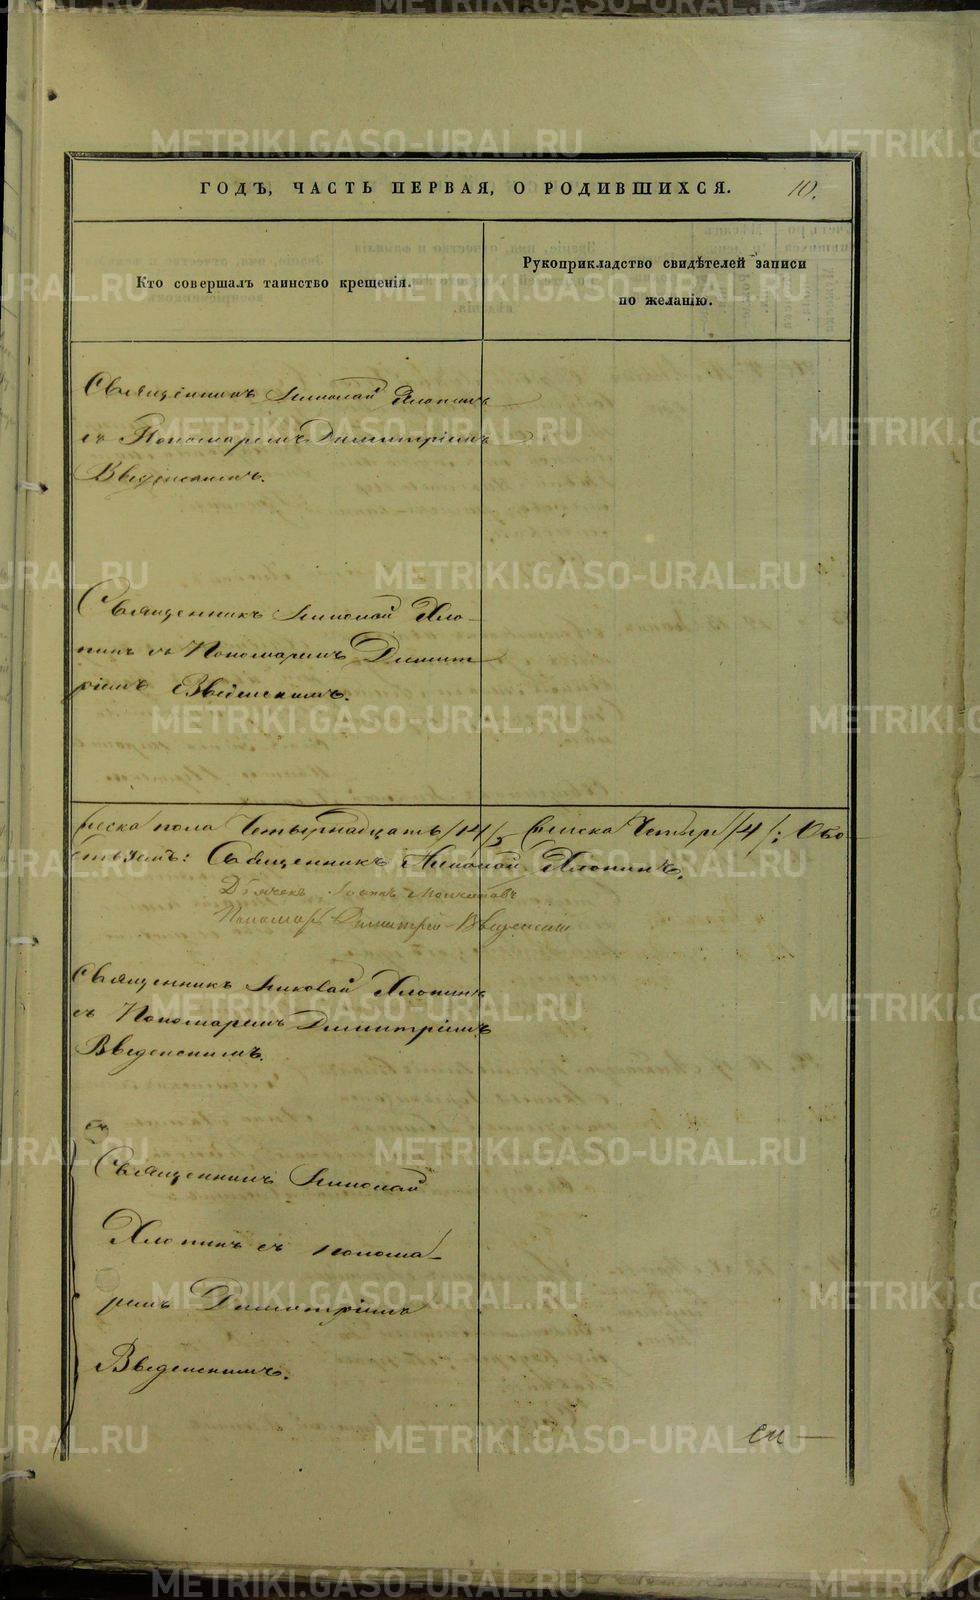 METRIKI.GASO-URAL.RU
ГОДЪ, ЧАСТЬ ПЕРВАЯ, О РОДИВШИХСЯ. 10.
Кто совершалъ таинство крещенія.
Рукоприкладство свидѣтелей записи
по желанію.
Священникъ Николай Хлопинъ
съ Пономаремъ Димитріемъ
Введенскимъ.
Священникъ Николай Хло-
пинъ съ Пономаремъ Димит
ріемъ Введенскимъ.
ческа пола Четырнадцать /14/, Женска Четыре /4/; Обо
Священникъ Николай Хлопинъ.
Дьячекъ Іоаннъ
Пономарь Димитрій Введенскій
Священникъ Николай Хлопинъ
съ Пономаремъ Димитріемъ
Введенскимъ.
Священникъ Николай
Хлопинъ съ понома-
ремъ Димитріемъ
Введенскимъ.